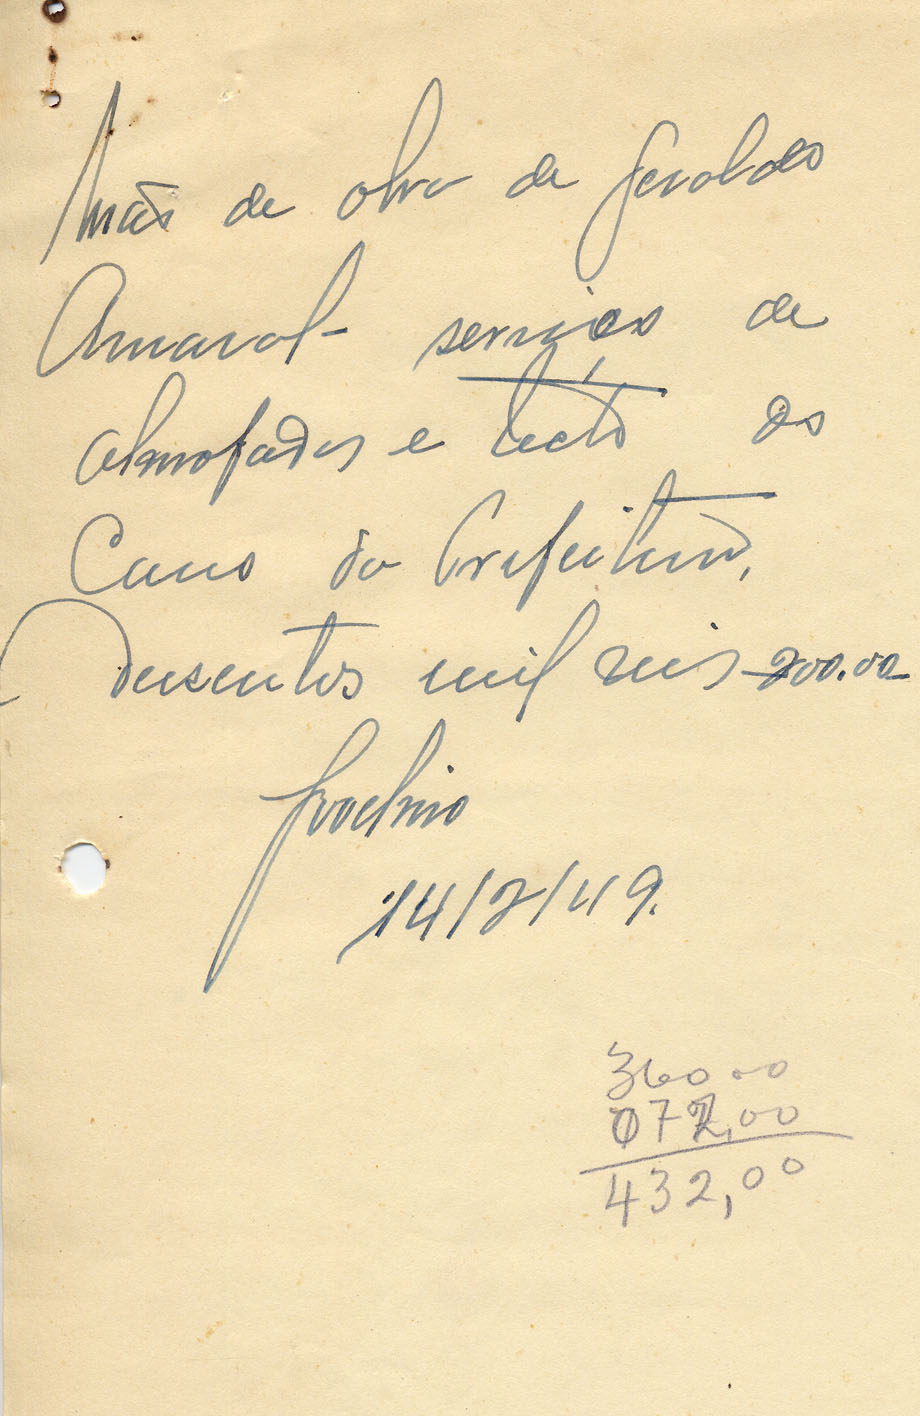 Mão de obra de Geraldo
Amaral - serviço de
almofadas e tecto do
Carro da Prefeitura,
Dusentos mil reis 200.00
14/2/49.
360 00
072,00
432,00